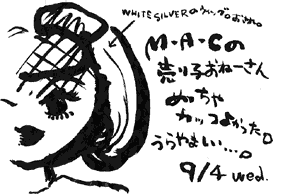 WHITE SILVERのウィッグ。おかれ。
M・A・Cの
売り子おねーさん
めっちゃ
カッコよかった。
うらやましい…。
9/4 wed.